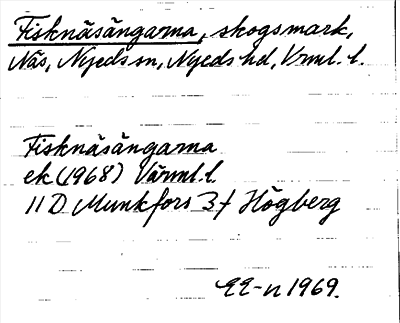 Fisknäsängarna, skogsmark,
Näs, Nyeds sn, Nyeds hd, Vrml. l.
Fisknäsängarna
ek (1968) Värml. l.
11 D Munkfors 3 f Högberg
EE-n 1969.